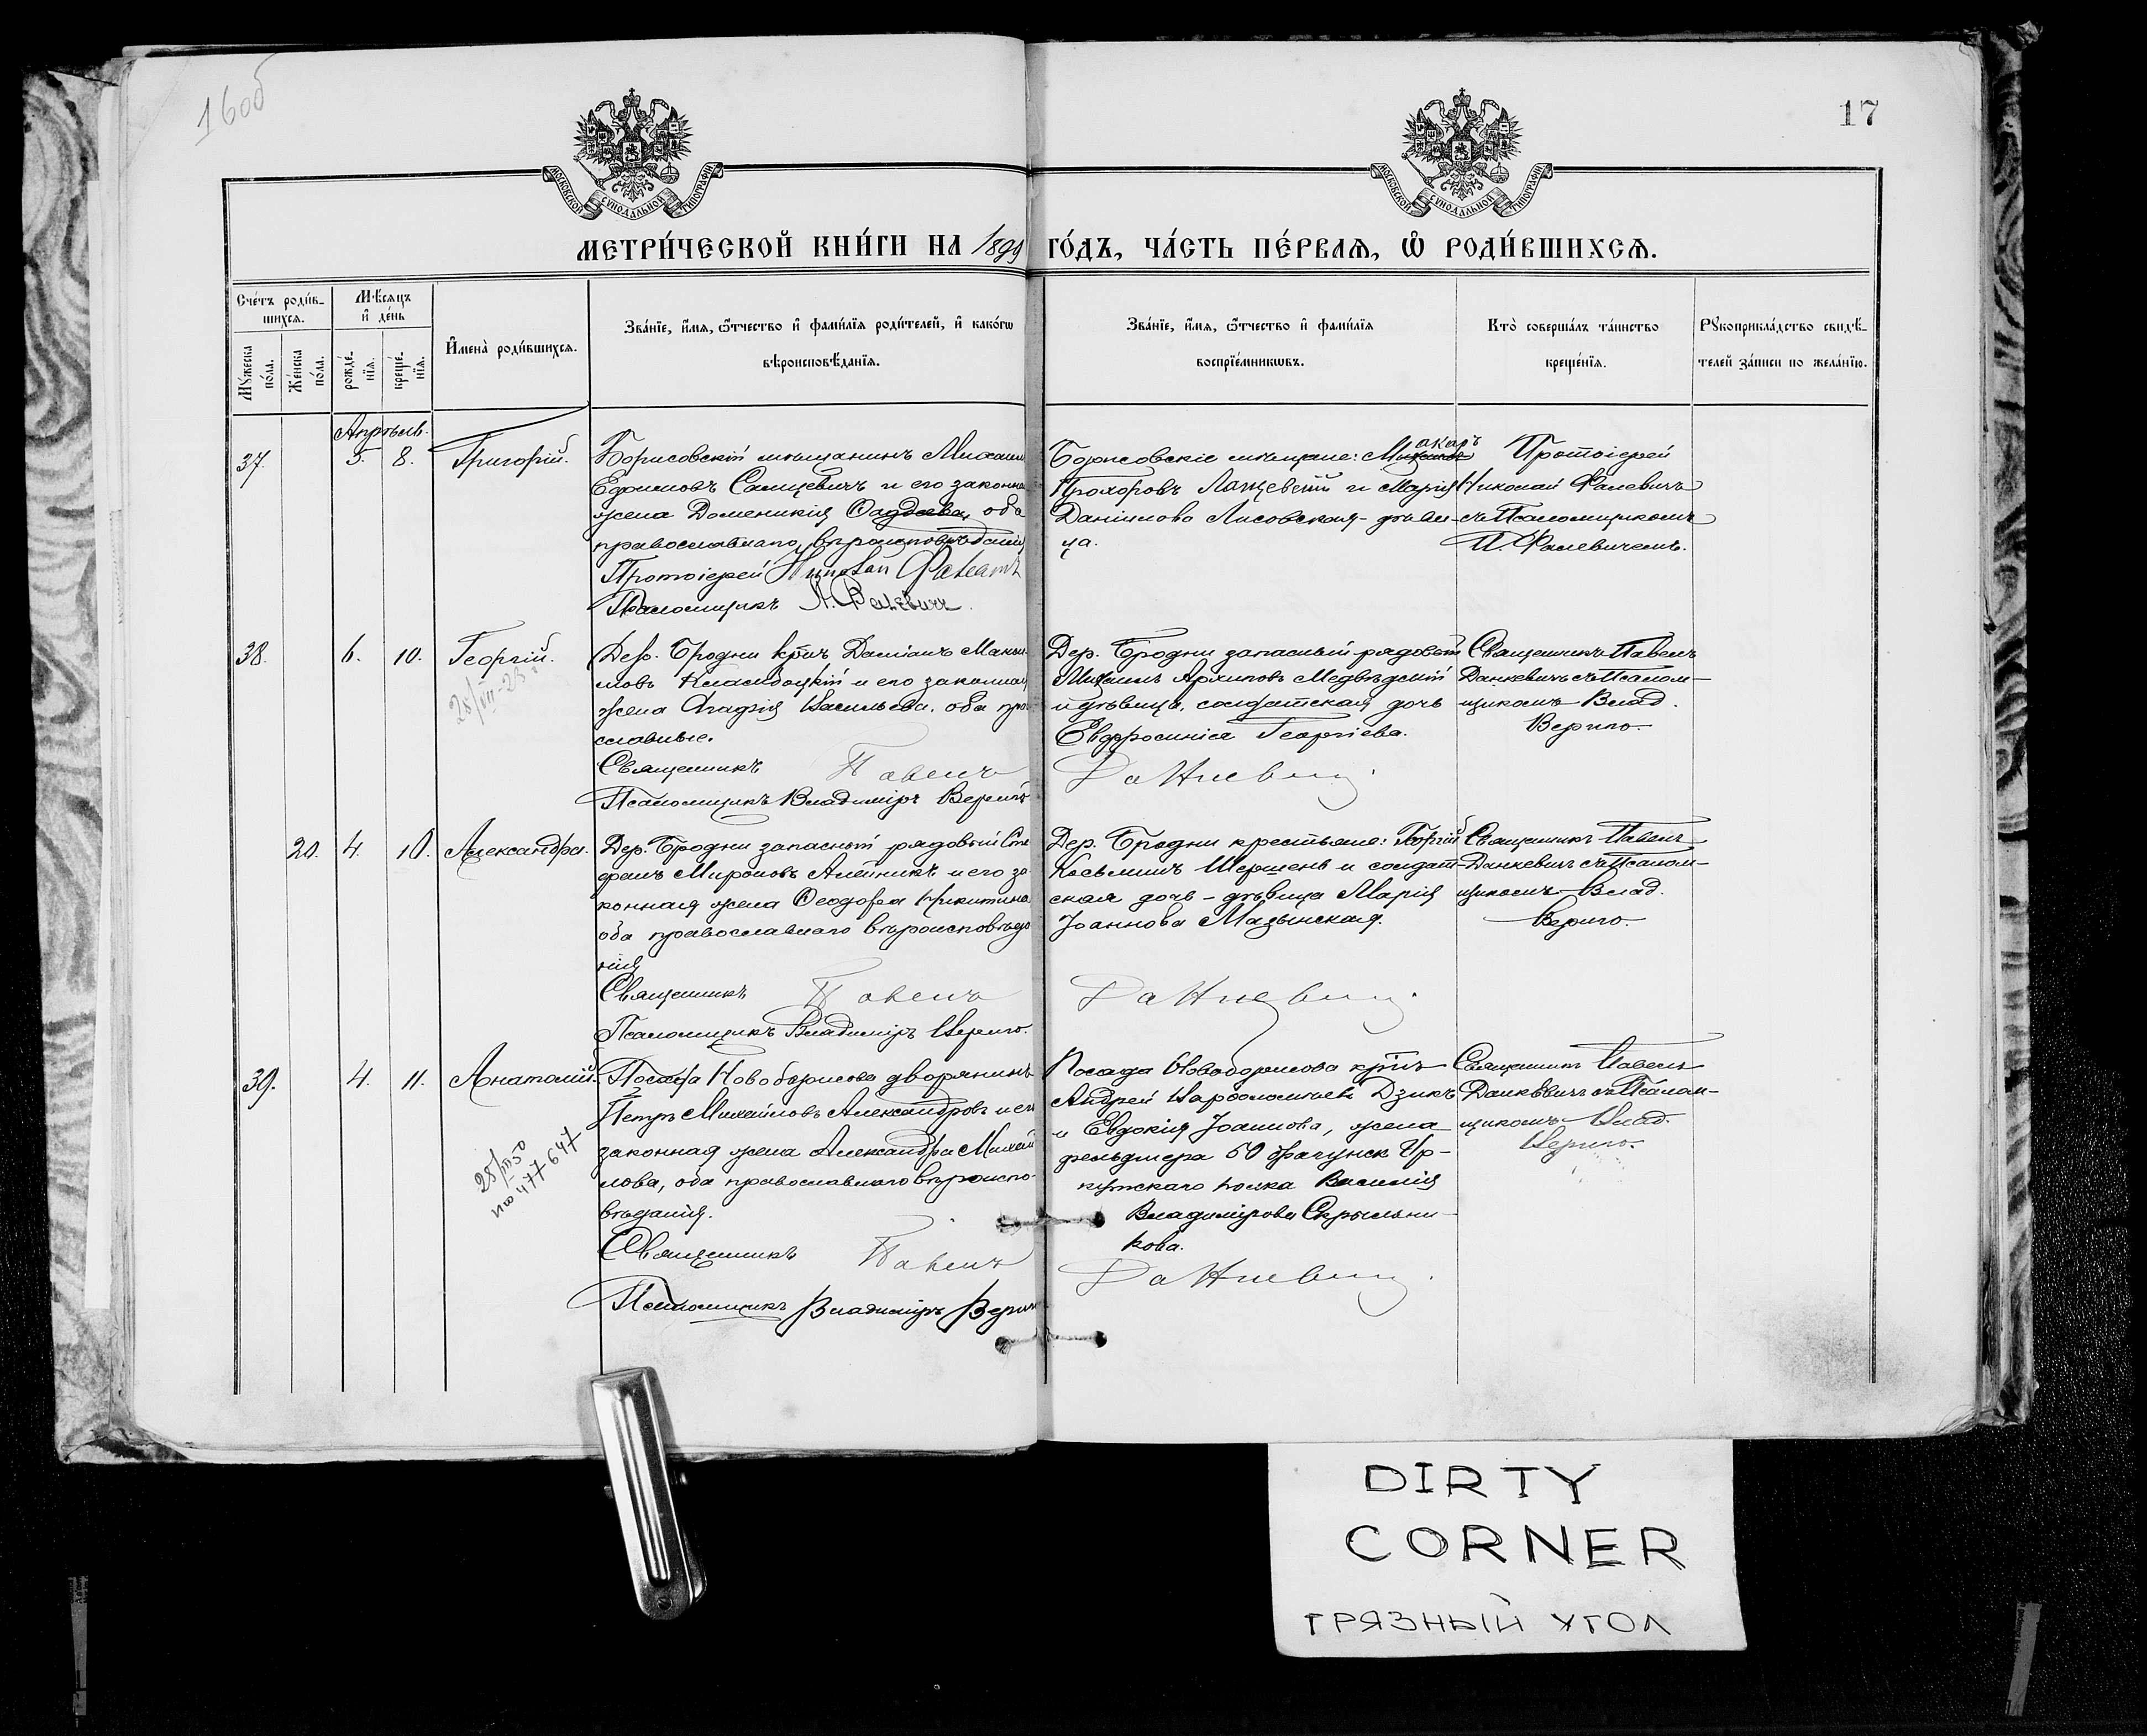 16об
17
МОСКОВСКОЙ СУНОДАЛЬНОЙ ТИПОГРАФІИ
МОСКОВСКОЙ СУНОДАЛЬНОЙ ТИПОГРАФІИ
МЕТРИ́ЧЕСКОЙ КНИ́ГИ НА 1899 ГО́ДЪ, ЧА́СТЬ ПЕ́РВАѦ, Ѡ РОДИ́ВШИХСѦ.
Сче́тъ роди́в-
шихсѧ.
Мѣ́сѧцъ
и де́нь
Мꙋ́жеска по́ла.
Же́нска по́ла.
рожде́-
нїѧ.
креще́-
нїѧ.
И҆мена̀ роди́вшихсѧ.
Зва́нїе, и҆́мѧ, ѻ҆́тчество и҆ фами́лїѧ роди́телей, и҆ како́гѡ
вѣроисповѣ́данїѧ.
Зва́нїе, и҆́мѧ, ѻ҆́тчество и҆ фами́лїѧ
воспрїе́мникѡвъ.
Кто̀ соверша́лъ та́инство
креще́нїѧ.
Рꙋкоприкла́дство свидѣ́-
телей за́писи по жела́нїю.
Апрѣль.
37.
5.
8.
Григорій.
Борисовскій мѣщанинъ Михаилъ
Ефимовъ Санцевичъ и его законная
жена Доменикія Фаддеева, оба
православнаго вѣроисповѣданія
Протоіерей Николай Фалевичъ
Псаломщикъ П. Фалевичъ.
Борисовскіе мѣщане: Макаръ
Прохоровъ и Марія
Даніилова Лисовская - дѣви-
ца.
Протоіерей
Николай Фалевичъ
съ Псаломщикомъ
П. Фалевичемъ.
38.
6.
10.
Георгій.
28/VII-23
Дер. Бродни кр̃нъ Даміанъ Макси-
мовъ и его законная
жена Агафія Васильева, оба право-
славные.
Священникъ Павелъ
Данкевичъ.
Псаломщикъ Владиміръ Вериго
Дер. Бродни запасный рядовой
Михаилъ Архиповъ Медвѣдскій
и дѣвица, солдатская дочь
Евфросинія Георгіева.
Священникъ Павелъ
Данкевичъ съ Псалом-
щикомъ Влад.
Вериго.
20.
4.
10.
Александра.
Дер. Бродни запасный рядовый Сте-
фанъ Мироновъ Алейникъ и его за-
конная жена Феодора Никитина
оба православнаго вѣроисповѣда-
нія
Священникъ Павелъ
Данкевичъ.
Псаломщикъ Владиміръ Вериго.
Дер. Бродни крестьяне: Георгій
Косьминъ Шершень и солдат-
ская дочь - дѣвица Марія
Іоаннова Мазынская.
Священникъ Павелъ
Данкевичъ съ Псалом-
щикомъ Влад.
Вериго.
39.
4.
11.
Анатолій.
28/III 50
по 477647
Посада Новоборисова дворянинъ
Петръ Михайловъ Александровъ и его
законная жена Александра Михай-
лова, оба православнаго вѣроиспо-
вѣданія.
Священникъ Павелъ
Данкевичъ.
Псаломщикъ Владиміръ Вериго
Посада Новоборисова кр̃нъ
Андрей Варфоломеевъ Дзикъ
и Евдокія Іоаннова, жена
фельдшера 50 Ир-
кутскаго полка Василія
Владимірова Скрыльни-
кова.
Священникъ Павелъ
Данкевичъ съ Псалом-
щикомъ Влад.
Вериго.
DIRTY
CORNER
ГРЯЗНЫЙ УГОЛ